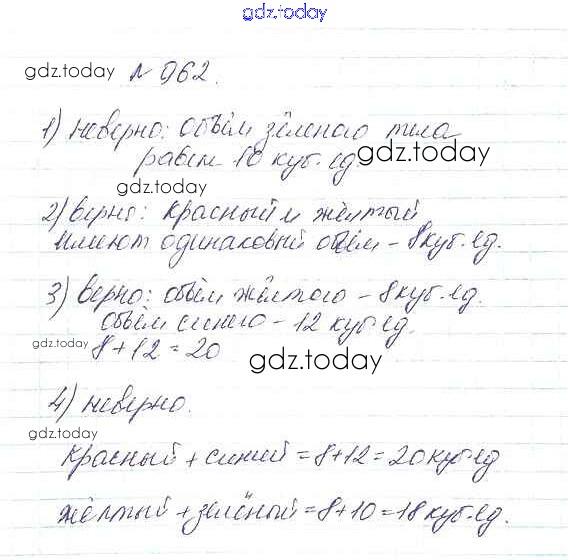 gdz.today
gdz.today № 962.
1) неверно: объём зеленого тела
равен 10 куб. ед. gdz.today
gdz.today
2) верно: красный и жёлтый
имеют одинаковый объём – 8 куб. ед.
3) верно: объём жёлтого – 8 куб. ед.
объём синего – 12 куб. ед.
gdz.today 8 + 12 = 20
gdz.today
4) неверно.
gdz.today
красный + синий = 8 + 12 = 20 куб. ед
жёлтый + зелёный = 8 + 10 = 18 куб. ед.